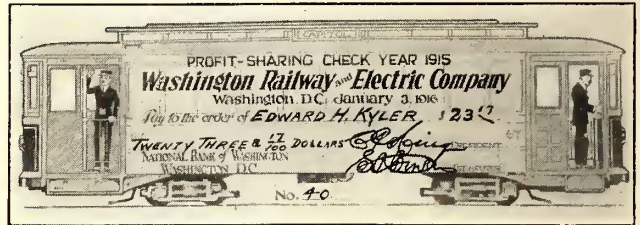 CAPITOL
PROFIT-SHARING CHECK YEAR 1915
Washington Railway and Electric Company
Washington, D.C. January 3, 1916
Pay to the order of EDWARD H. KYLER $23 17
TWENTY THREE & 17/100 DOLLARS
PRESIDENT
NATIONAL BANK OF WASHINGTON
WASHINGTON D.C.
No. 40